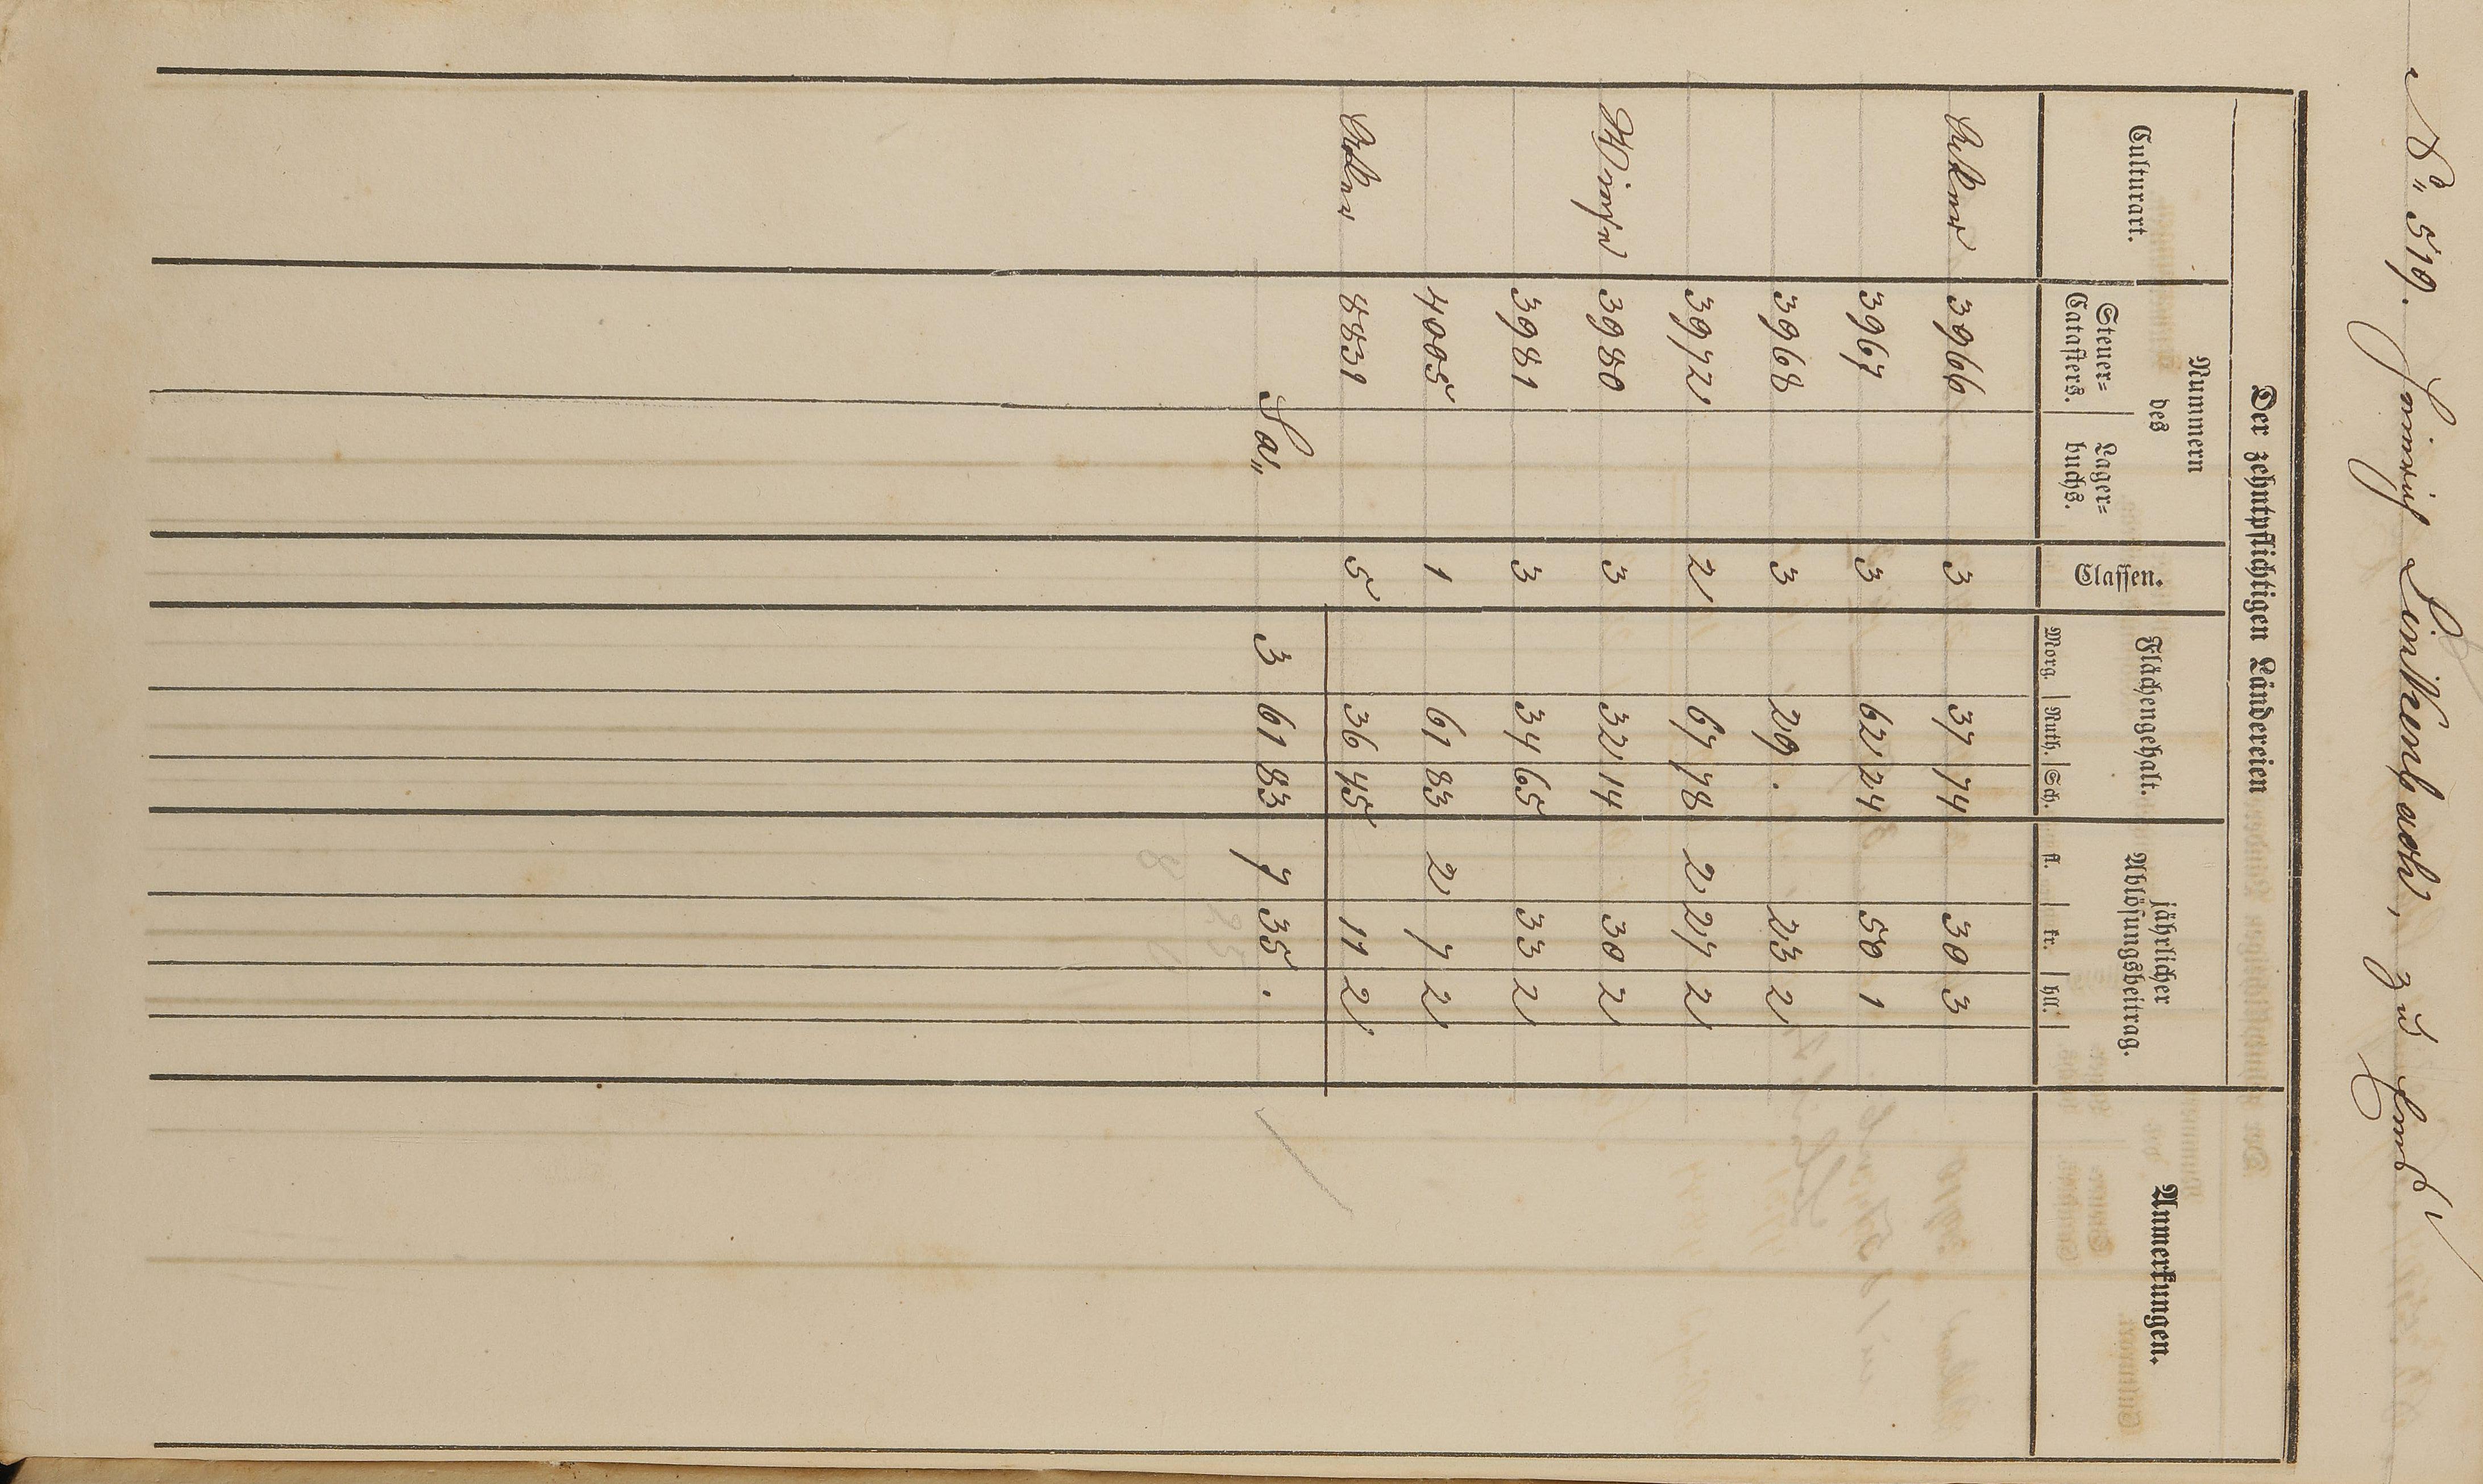 No. 519. Heinrich Linkenbach, zu Ems
Der zehntpflichtigen Ländereien
Culturart. Nummern des Steuer= Catasters. Lager= buchs. Classen. Flächengehalt. Morg. Ruth. Sch. jährlicher Ablösungsbeitrag. fl. kr. hll. Anmerkungen.
Acker 3966 3 37 74 30 3
3967 3 62 24 50 1
3968 3 29 . 23 2
3972 2 67 78 2 27 2
Wiese 3980 3 32 14 30 2
3981 3 34 65 33 2
4005 1 61 83 2 7 2
Acker 8831 5 36 45 11 2
Sa. 3 61 83 7 35 .